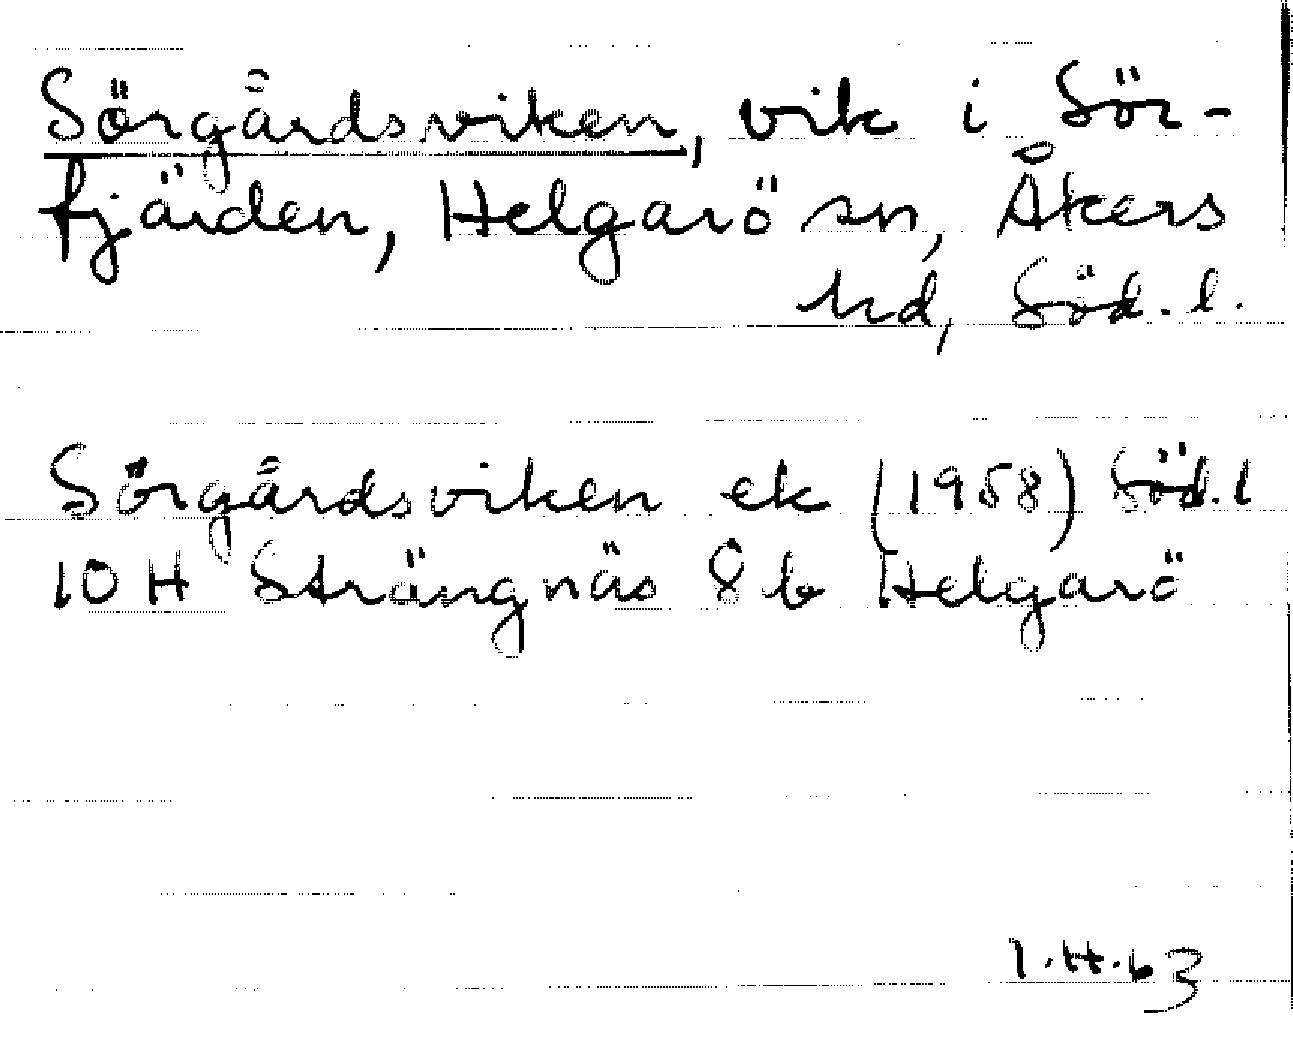 Sörgårdsviken, vik i Sör-
fjärden, Helgarö sn, Åkers
hd, Söd. l.
Sörgårdsviken ek (1958) Söd. l
10 H Strängnäs 8 b Helgarö